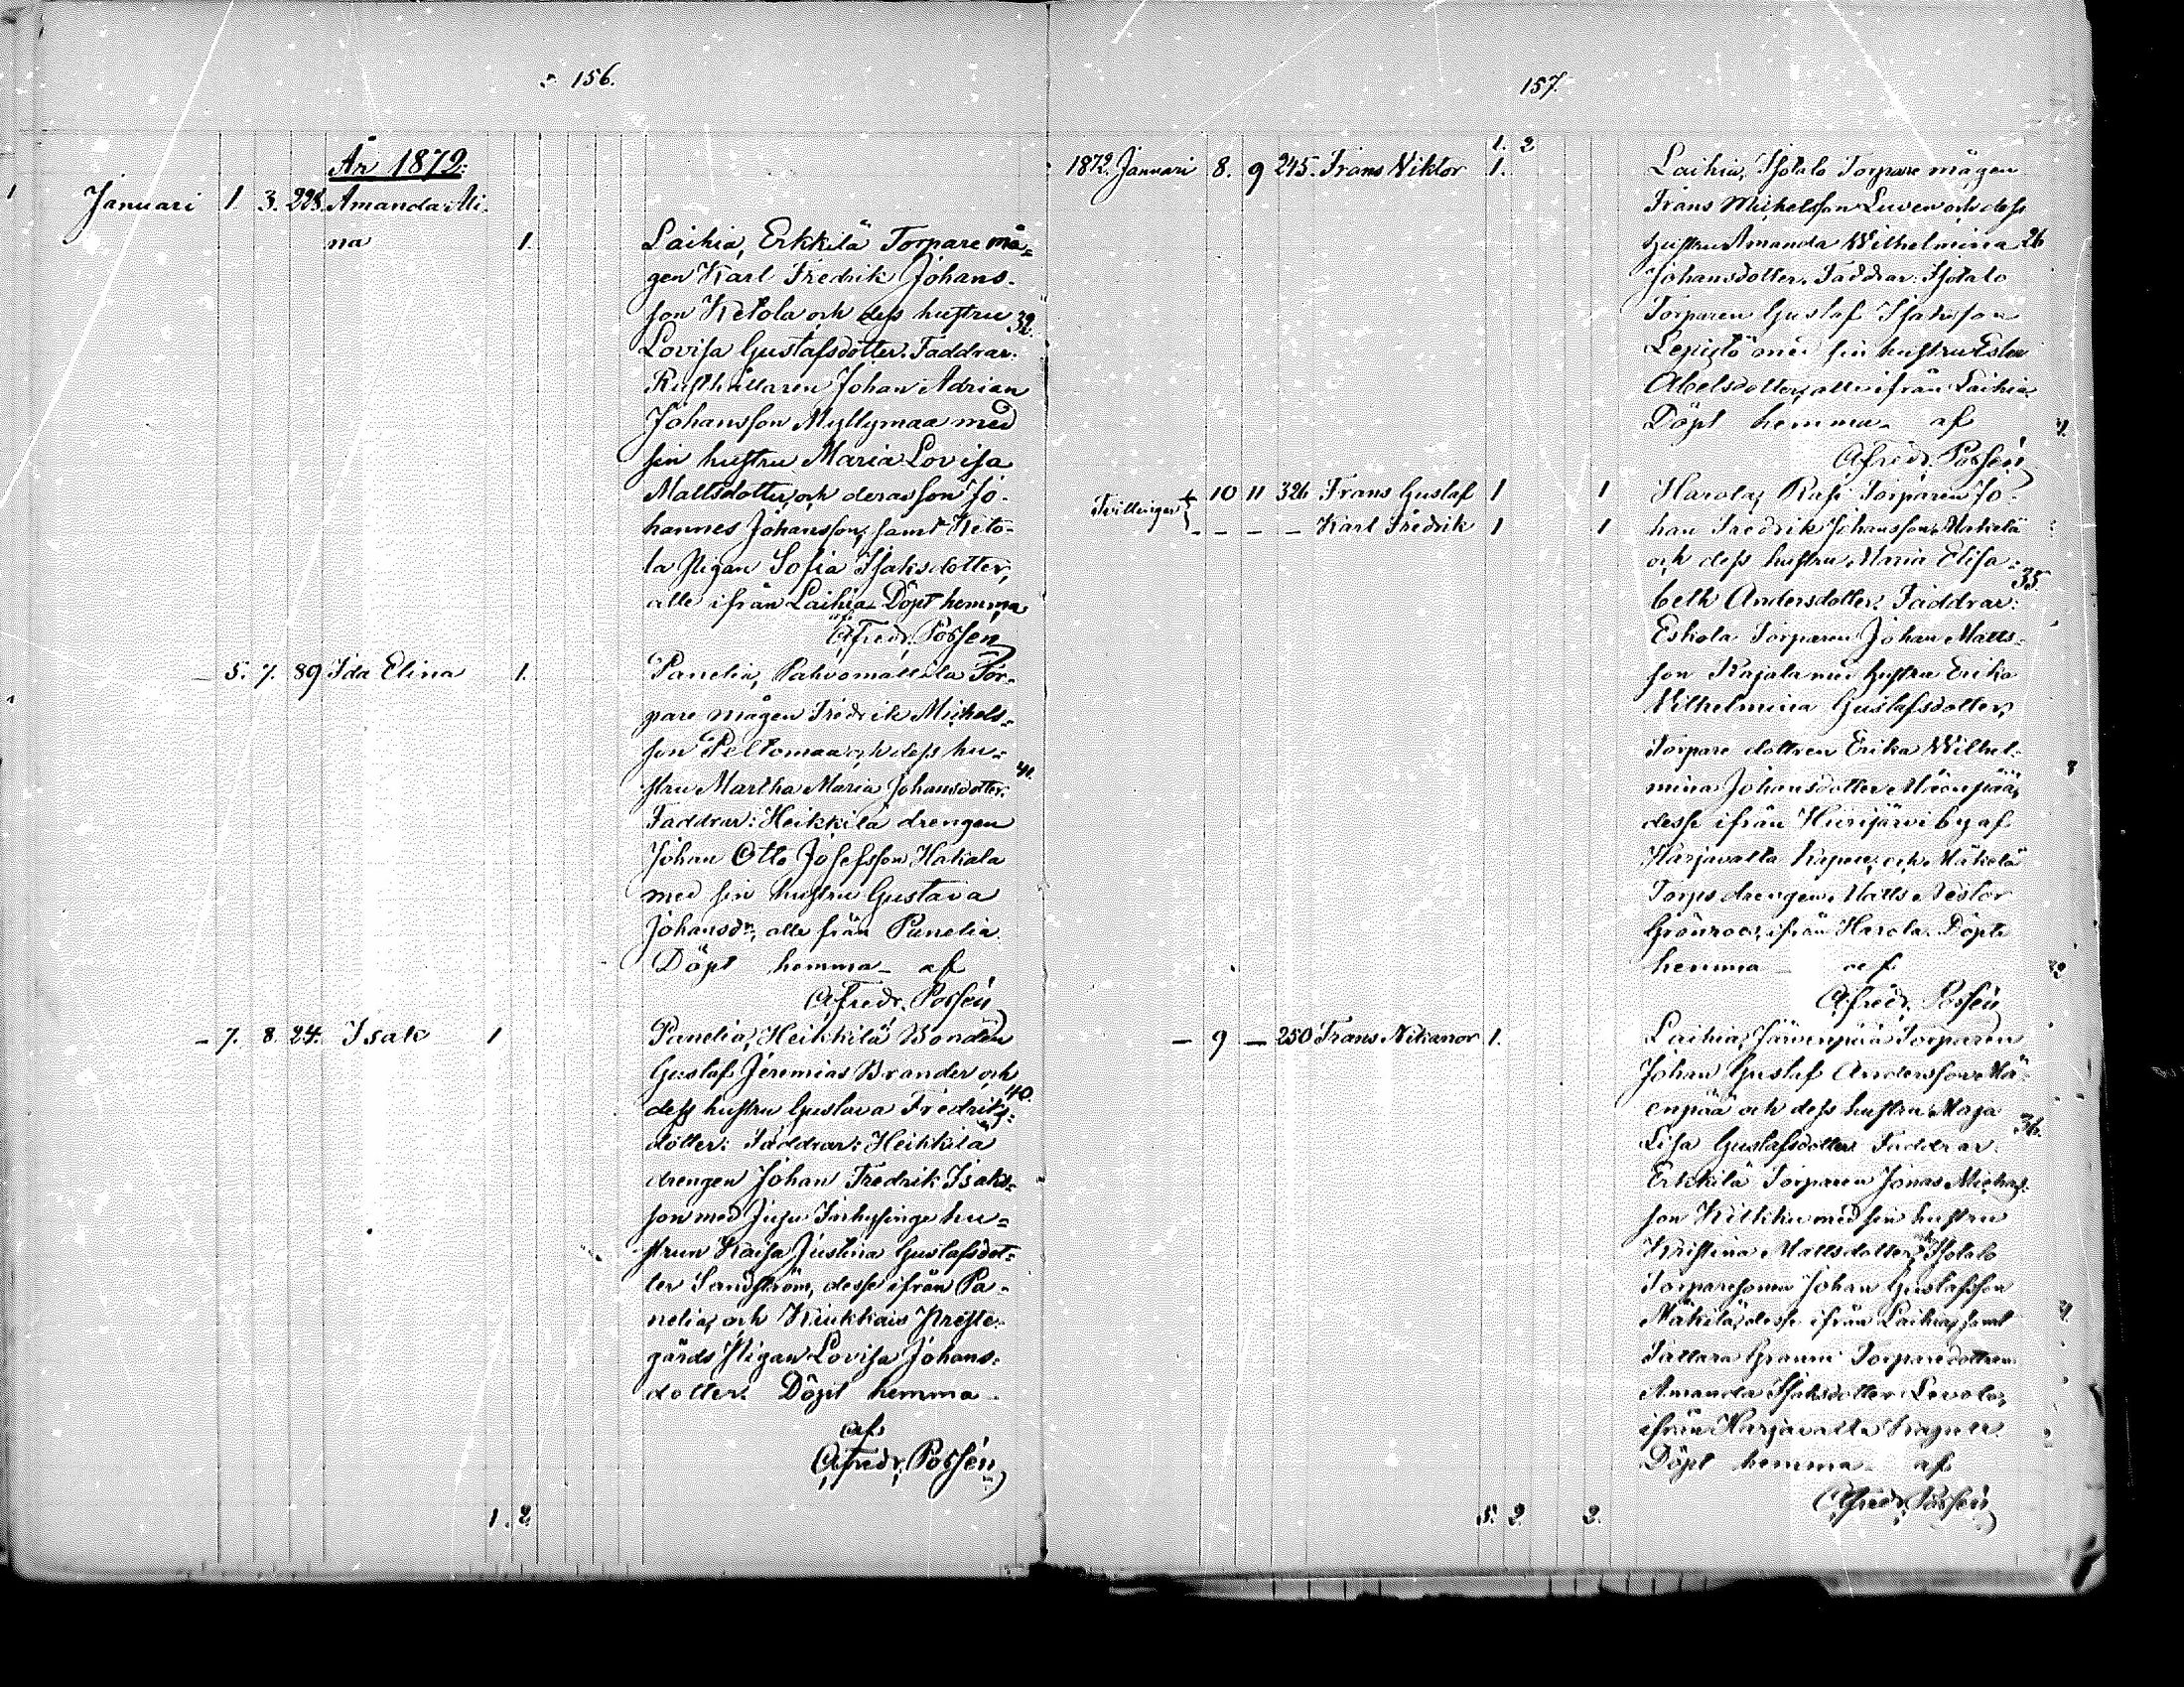 156.
År 1872.
Januari 1. 3. 228. Amanda Ali-
na 1. Laihia, Erkkilä Torpare må-
gen Karl Fredrik Johans-
son Ketola och dess hustru 32.
Lovisa Gustafsdotter. Faddrar:
Rusthållaren Johan Adrian
Johansson Myllymaa med
sin hustru Maria Lovisa
Mattsdotter, och deras son Jo-
hannes Johansson, samt Keto-
la Pigan Sofia Isaksdotter,
alle ifrån Laihia. Döpt hemma
af A. Fredr. Possén
— 5. 7. 89 Ida Elina 1. Panelia, Pahvomattila Tor-
pare mågen Fredrik Michels-
son Peltomaa och dess hu-
stru Martha Maria Johansdotter. 41.
Faddrar: Heikkilä drengen
Johan Otto Josefsson Hakala
med sin hustru Gustava
Johansdr, alle från Panelia.
Döpt hemma — af
A. Fredr. Possén
— 7. 8. 24. Isak 1 Panelia, Heikkilä Bonden
Gustaf Jeremias Brander och
dess hustru Gustava Fredriks- 40.
dotter: Faddrar: Heikkilä
drengen Johan Fredrik Isaks-
son med Juju Inhysinge hu-
strun Kaisa Justina Gustafsdot-
ter Sandström, desse ifrån Pa-
nelia, och Kiukkais Preste-
gårds Pigan Lovisa Johans-
dotter. Döpt hemma —
af
A. Fredr. Possén
1. 2.
157.
1. 2
1872. Januari 8. 9 245. Frans Viktor 1. Laihia, Isotalo Torpare mågen
Frans Michelsson Luven och dess
hustru Amanda Wilhelmina 26
Johansdotter. Faddrar: Isotalo
Torparen Gustaf Isaksson
Lepistö med sin hustru Ester
Abelsdotter, alle ifrån Laihia.
Döpt hemma — af
A. Fredr. Possén
Tvillingar { 10 11 326 Frans Gustaf 1 1 Harola, Rasi Torparen Jo-
— — — — Karl Fredrik 1 1 han Fredrik Johansson Mäkelä
och dess hustru Maria Elisa-
beth Andersdotter. Faddrar: 35.
Eskola Torparen Johan Matts-
son Rajala med hustru Erika
Vilhelmina Gustafsdotter,
Torpare dottren Erika Wilhel-
mina Johansdotter Mäenpää,
desse ifrån Hiirijärvi by af
Harjavalta Kapell, och Mäkelä
Torps drengen Matts Nestor
Grönroos, ifrån Harola. Döpte
hemma — af
A. Fredr. Possén
— 9 — 250 Frans Nikanor 1. Laihia, Järvenpää Torparen
Johan Gustaf Andersson Mä-
enpää och dess hustru Maja
Lisa Gustafsdotter. Faddrar: 36.
Erkkilä Torparen Jonas Michels-
son Kitkku med sin hustru
Kristina Mattsdotter, Isotalo
Torparesonen Johan Gustafsson
Mäkilä, desse ifrån Laihia, samt
Tattara Granni Torparedottren
Amanda Isaksdotter Levola,
ifrån Harjavalta Kapell.
Döpt hemma — af
A. Fredr. Possén
5. 2. 2.